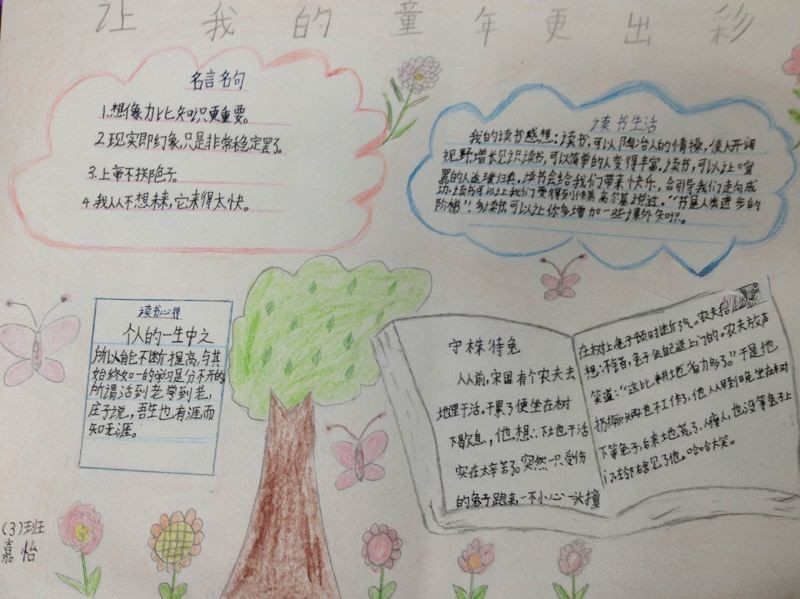 让我的童年更出彩
名言名句
1.想像力比知识更重要。
2.现实即幻象,只是非常稳定罢了。
3.上帝不掷骰子。
4.我从不想未来,它来得太快。
读书生活
我的读书感想:读书,可以陶冶人的情操,使人开阔
视野,增长见识读书,可以简单的人变得丰富,读书,可以让喧
嚣的人返璞归真,读书会给我们带来快乐,会引导我们走向成
功,读书可以让我们变得到快乐高尔基说过。“书是人类进步的
阶梯”!多读书,可以让你多增加一些课外知识。
读书心得
个人的一生中之
所以能不断提高,与其
始终如一的学习是分不开的
所谓活到老,学到老,
庄子说,吾生也有涯而
知无涯。
守株待兔
从前,宋国有个农夫去
地里干活。干累了便坐在树
下歇息,他想:下土也干活
实在太辛苦了。突然一只受伤
的兔子跑来一不小心一头撞
在树上兔子顿时迷断了气。农夫
想:不错,兔子会自送上门的。农夫放声
笑道:“这比耕土地省力多了。”于是他
扔掉锄头再也不工作了,他从早到晚坐在树
下等兔子,后来土地荒了,人瘦人,也没等兔子上
门左邻右舍见了他。哈哈大笑。
(3)班
嘉怡